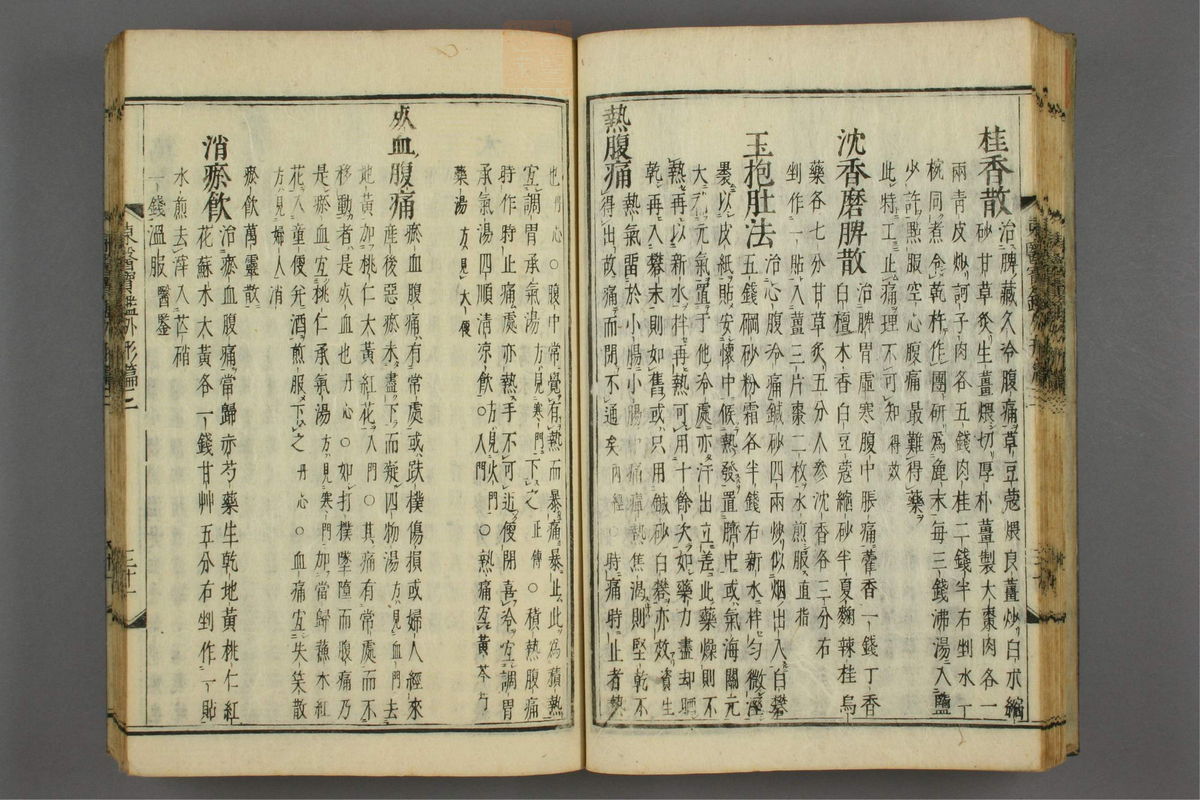 桂香散治脾藏久冷腹痛草豆蔻煨良薑炒白朮縮
砂甘草灸生薑煨切厚朴薑製大棗肉各一
兩青皮炒訶子肉各五錢肉桂二錢半右剉水一
椀同煮令乾杵作團研爲麁末每三錢沸湯入鹽
少許點服空心腹痛最難得藥
此特工止痛理不可知得效
沈香磨脾散治脾胃虛寒腹中脹痛藿香一錢丁香
白檀木香白豆蔻縮砂半夏麴辣桂烏
藥各七分甘草灸五分人參沈香各三分右
剉作一貼入薑三片棗二枚水煎服直指
玉抱肚法治心腹冷痛鍼砂四兩炒似烟出入白礬
五錢硇砂粉霜各半錢右新水拌勻微溼
裹以皮紙貼安懷中候熱發置臍中或氣海關元
大元氣置于他冷處亦汗出立差此藥燥則不
熱再以新水拌再熱可用十餘次如藥力盡却曬
乾再入礬末則如舊或只用鍼砂白礬亦效資生
熱腹痛熱氣留於小腸小腸中痛癉熱焦渴則堅乾不
得出故痛而閉不通矣內經○時痛時止者熱
也丹心○腹中常覺有熱而暴痛暴止此爲積熱
宜調胃承氣湯方見寒門下之正傳○積熱腹痛
時作時止痛處亦熱手不可近便閉喜冷宜調胃
承氣湯四順清涼飮方見火門○入門○熱痛宜黃芩芍
藥湯方見大便
瘀血腹痛瘀血痛有常處或跌撲傷損或婦人經來
產後惡瘀未盡下而凝四物湯方見血門去
地黃加桃仁大黃紅花入門○其痛有常處而不
移動者是瘀血也丹心○如打撲墜墮而腹痛乃
是瘀血宜桃仁承氣湯方見寒門加當歸蘇木紅
花入童便和酒煎服下之丹心○血痛宜失笑散
方見婦人消
瘀飮萬靈散
消瘀飮治瘀血腹痛當歸赤芍藥生乾地黃桃仁紅
花蘇木大黃各一錢甘艸五分右剉作一貼
水煎去滓入芒硝
一錢溫服醫鑒
東醫寶鑑外形篇三
三十一